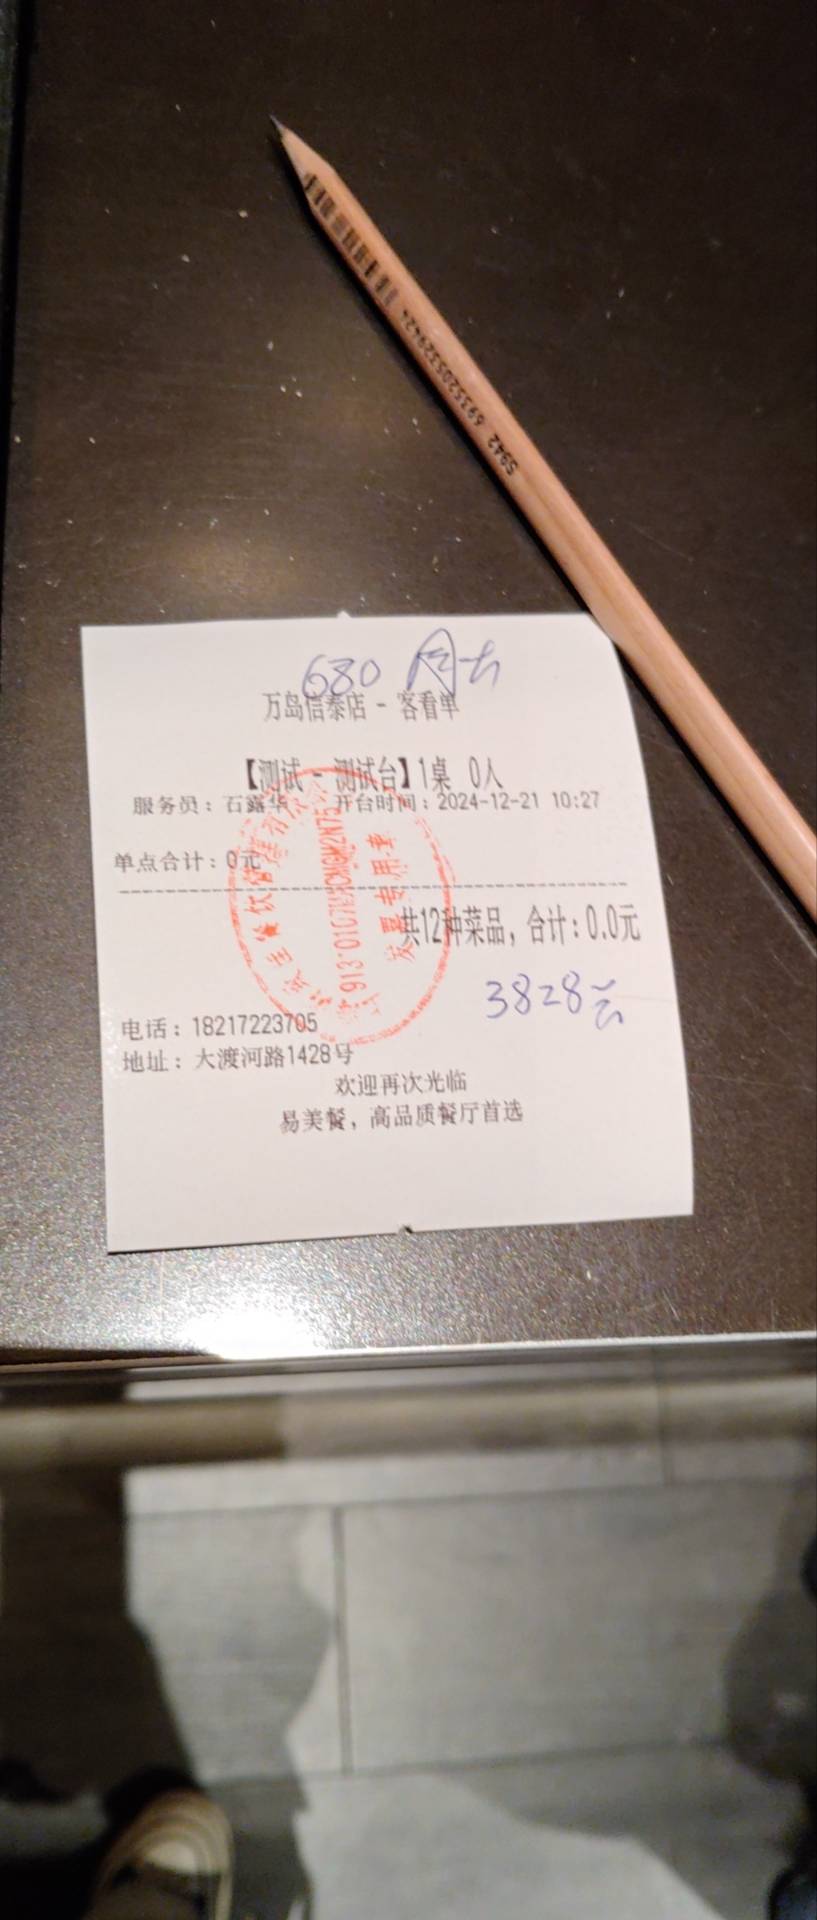 5942 6935205329424
680
万岛信泰店 - 客看单
【测试 - 测试台】1桌 0人
服务员：石露华 开台时间：2024-12-21 10:27
单点合计：0元
共12种菜品，合计：0.0元
3828元
电话：18217223705
地址：大渡河路1428号
欢迎再次光临
易美餐，高品质餐厅首选
发票专用章